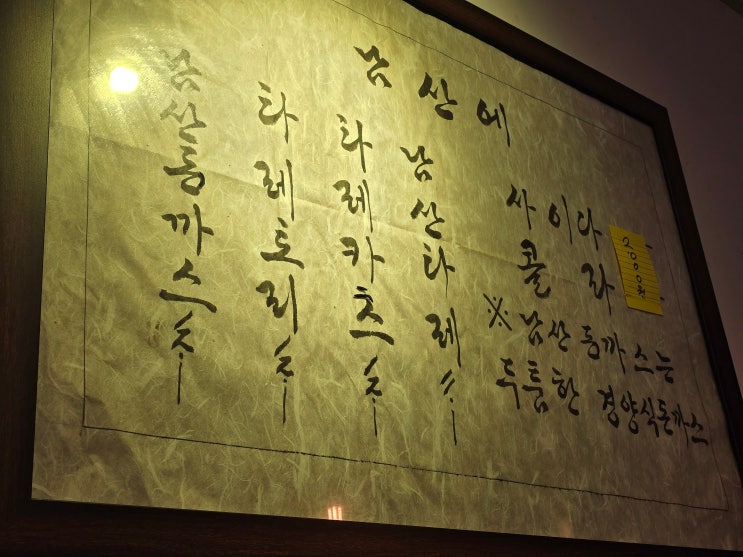 남산에
남산동까스
타레토리
타레카츠
남산타레
사이다
콜라
2.000원
※ 남산 동까스는
두툼한 경양식돈까스